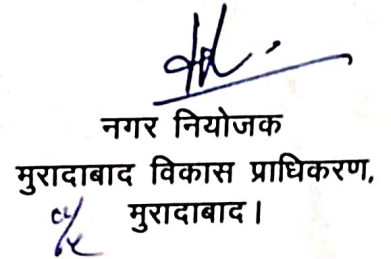 नगर नियोजक
मुरादाबाद विकास प्राधिकरण,
मुरादाबाद।